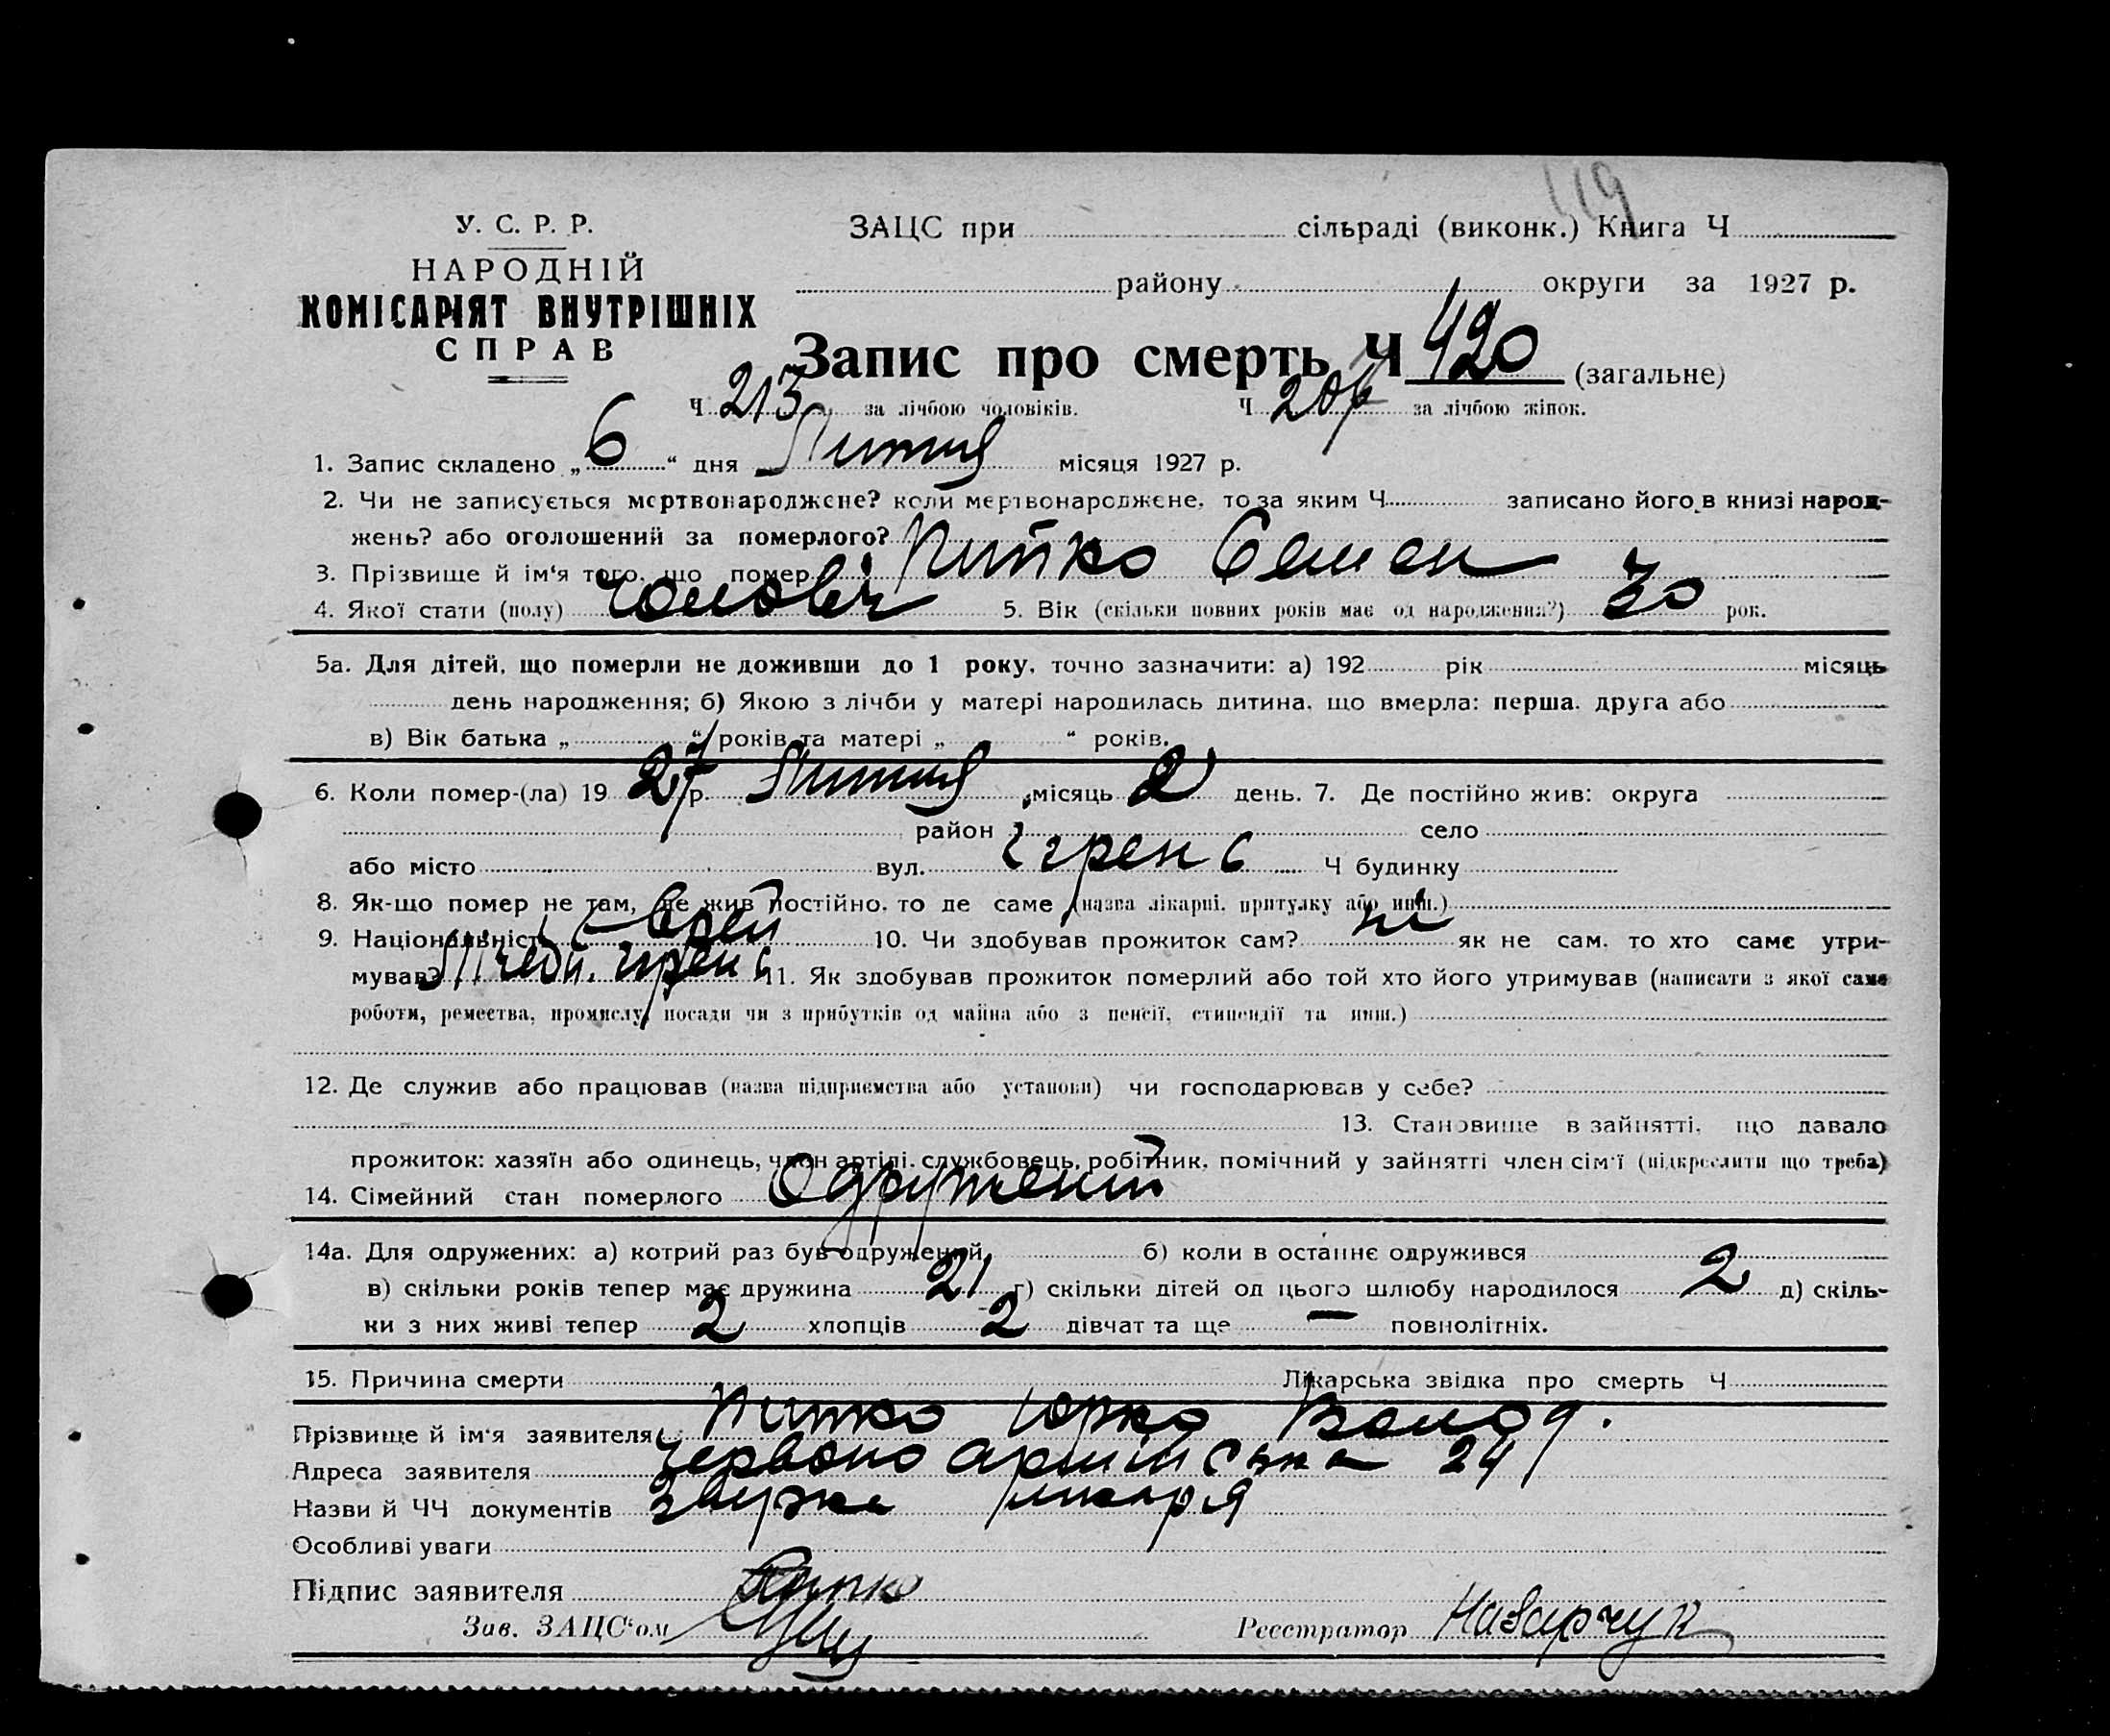 119
У. С. Р. Р.
НАРОДНІЙ
КОМІСАРІЯТ ВНУТРІШНІХ
СПРАВ
ЗАЦС при сільраді (виконк.) Книга Ч
району округи за 1927 р.
Запис про смерть Ч 420 (загальне)
Ч 213 за лічбою чоловіків. Ч 206 за лічбою жінок.
1. Запис складено „ 6 “ дня Липня місяця 1927 р.
2. Чи не записується мертвонароджене? коли мертвонароджене, то за яким Ч записано його в книзі народ-
жень? або оголошений за померлого?
3. Прізвище й ім‘я того, що помер Литко Семен
4. Якої стати (полу) чоловіч 5. Вік (скільки повних років має од народження?) 30 рок.
5а. Для дітей, що померли не доживши до 1 року, точно зазначити: а) 192 рік місяць
день народження; б) Якою з лічби у матері народилась дитина, що вмерла: перша, друга або
в) Вік батька „ “ років та матері „ “ років.
6. Коли помер-(ла) 19 27 р. Липня місяць 2 день. 7. Де постійно жив: округа
район село
або місто вул. Ігрень Ч будинку
8. Як-що помер не там, де жив постійно, то де саме (назва лікарні, притулку або инш.)
9. Національність Єврей 10. Чи здобував прожиток сам? ні як не сам, то хто саме утри-
мував? 11. Як здобував прожиток померлий або той хто його утримував (написати з якої саме
роботи, ремества, промислу, посади чи з прибутків од майна або з пенсії, стипендії та инш.)
12. Де служив або працював (назва підприємства або установи) чи господарював у себе?
13. Становище в зайнятті, що давало
прожиток: хазяїн або одинець, член артілі, службовець, робітник, помічний у зайнятті член сім‘ї (підкреслити що треба)
14. Сімейний стан померлого Одружений
14а. Для одружених: а) котрий раз був одружений б) коли в останнє одружився
в) скільки років тепер має дружина 21 г) скільки дітей од цього шлюбу народилося 2 д) скіль-
ки з них живі тепер 2 хлопців 2 дівчат та ще — повнолітніх.
15. Причина смерти Лікарська звідка про смерть Ч
Прізвище й ім‘я заявителя Литко Юрко Волод.
Адреса заявителя Червоно армійська 24
Назви й ЧЧ документів лікаря
Особливі уваги
Підпис заявителя
Зав. ЗАЦС‘ом
Реєстратор Назарчук